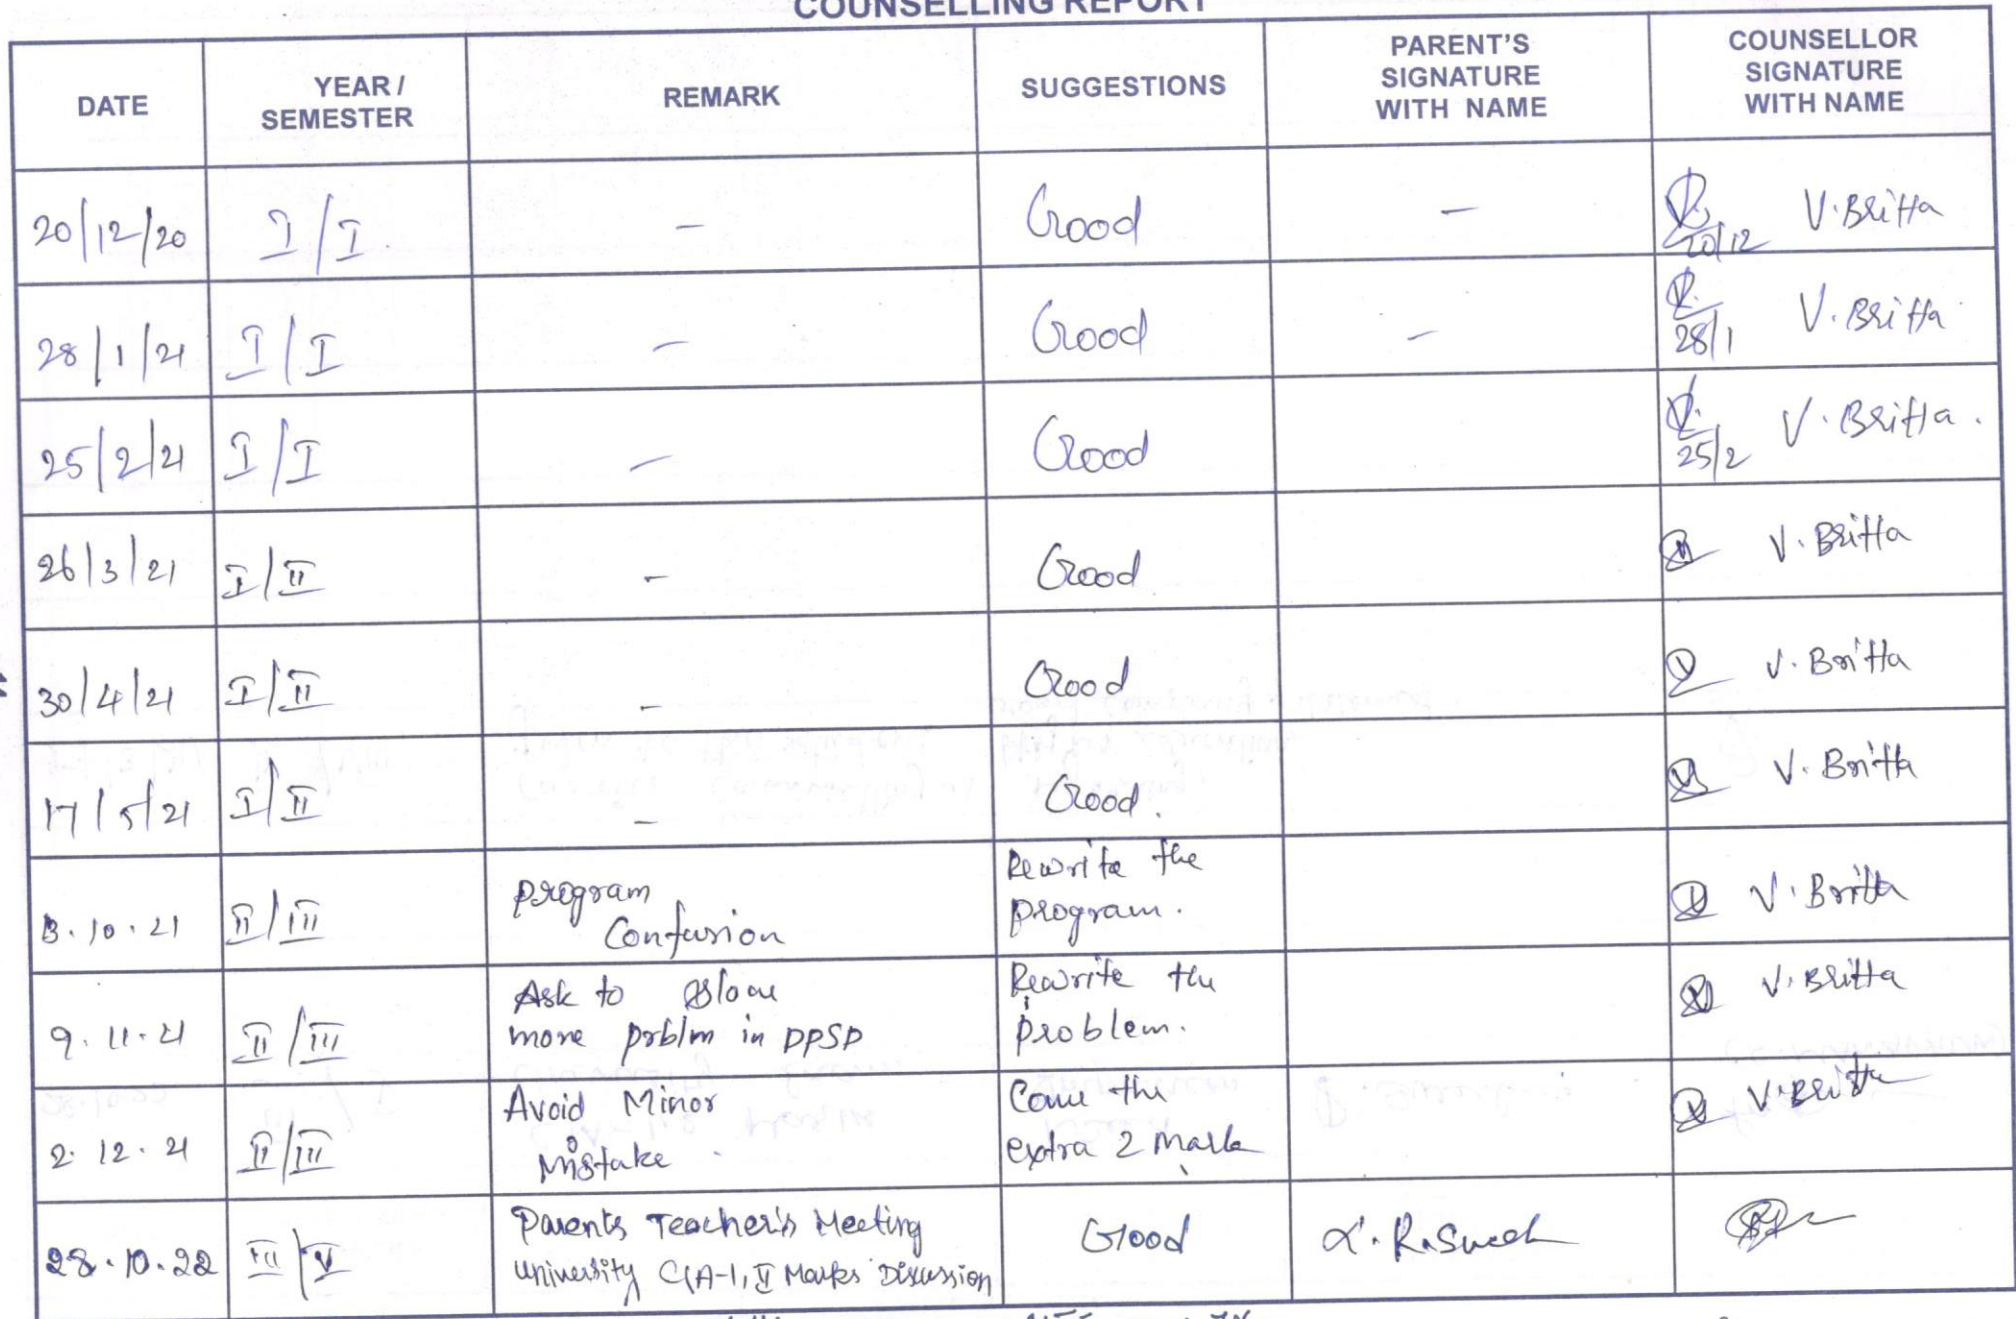 COUNSELLING REPORT
DATE YEAR / SEMESTER REMARK SUGGESTIONS PARENT'S SIGNATURE WITH NAME COUNSELLOR SIGNATURE WITH NAME
20/12/20 I/I - Good - 20/12 V. Britta
28/1/21 I/I - Good - 28/1 V. Britta
25/2/21 I/I - Good 25/2 V. Britta.
26/3/21 I/II - Good V. Britta
30/4/21 I/II - Good V. Britta
17/5/21 I/II - Good. V. Britta
3.10.21 II/III program Confusion Rewrite the program. V. Britta
9.11.21 II/III Ask to more prblm in PPSP Rewrite the problem. V. Britta
2.12.21 II/III Avoid Minor Mistake. the extra 2 Mark V. Britta
28.10.22 III/V Parents Teacher's Meeting Good
University CIA-I, II Marks Discussion